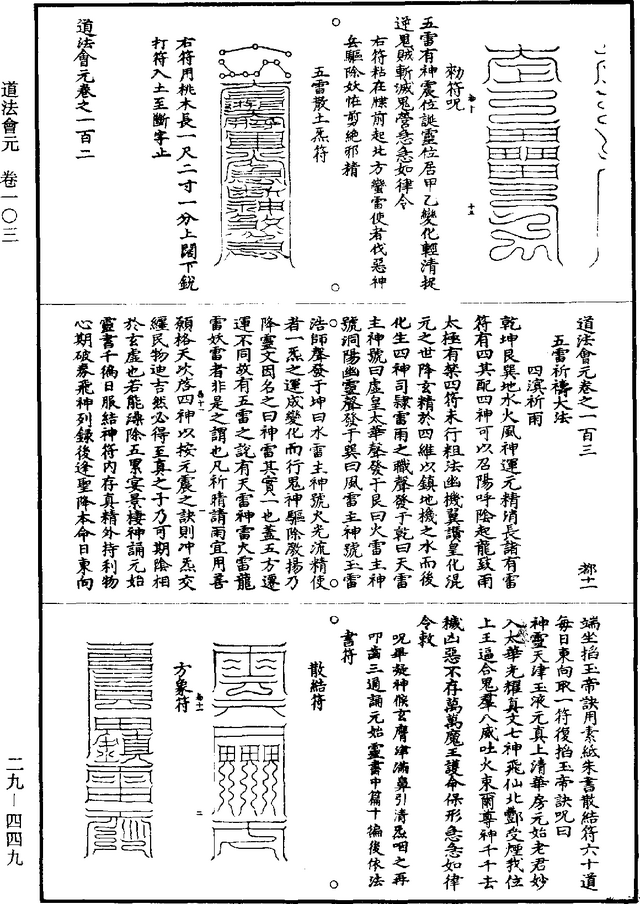 勑符呪
五雷有神震位誕靈位居甲乙變化輕清捉
逆鬼賊斬滅鬼營急急如律令
右符粘在牒前起北方蠻雷使者伐惡神
兵驅除妖怪剪絕邪精
五雷散土炁符
右符用桃木長一尺二寸一分上闊下銳
打符入土至斷字止
道法會元卷之一百二
道法會元卷之一百三
五雷祈禱大法
四濱祈雨
乾坤艮巽地水火風神運元精消長諸有雷
符有四其配四神可以召陽呼陰起龍致雨
太極有葉四符末行粗法幽機翼讚皇化混
元之世降玄精於四維以鎮地機之水而後
化生四神司隸雷雨之職聲發于乾曰天雷
主神號曰虛皇太華聲發于艮曰火雷主神
號洞陽幽靈聲發于巽曰風雷主神號玉雷
浩師聲發于坤曰水雷主神號火光流精使
者一炁之運成變化而行鬼神驅除激揚乃
降靈文因名之曰神雷其實一也蓋五方遷
運不同故有五雷之說有天雷神雷大雷龍
雷妖雷者非是之謂也凡祈晴請雨宜用善
願格天次啓四神以按元震之訣則冲炁交
羅民物迪吉然必得至真之子乃可期陰相
於玄虛也若能澡除五累宴景棲神誦元始
靈書千徧日服結神符內存真精外持利物
心期破劵飛神列錄後逢聖降本命日東向
端坐掐玉帝訣用素紙朱書散結符六十道
每日東向取一符復掐玉帝訣呪曰
神靈天津玉液元真上清華房元始老君妙
入太華光耀真文七神飛仙北酆受煙我位
上王逼合鬼羣八威吐火束爾尊神千千去
穢凶惡不存萬萬魔王護命保形急急如律
令敕
呪畢凝神候玄膺津滿鼻引清炁咽之再
叩齒三通誦元始靈書中篇十徧後依法
書符
散結符
方象符
道法會元 卷一〇三
二九—四四九